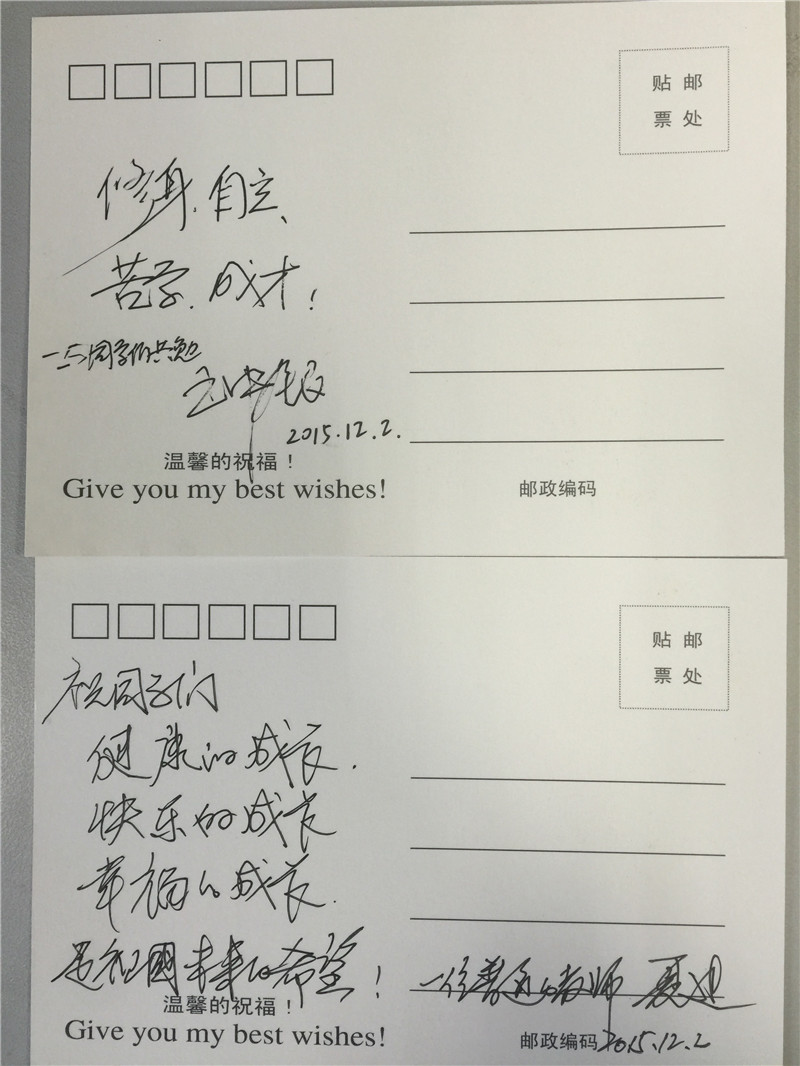 贴 邮
票 处
修身、自立、
苦学、成才！
—与同学们共勉
2015.12.2.
温馨的祝福！
Give you my best wishes!
邮政编码
贴 邮
票 处
祝同学们
健康的成长.
快乐的成长
幸福的成长.
是祖國未来的希望！
一位普通的教师 夏迎
温馨的祝福！
Give you my best wishes!
邮政编码 2015.12.2